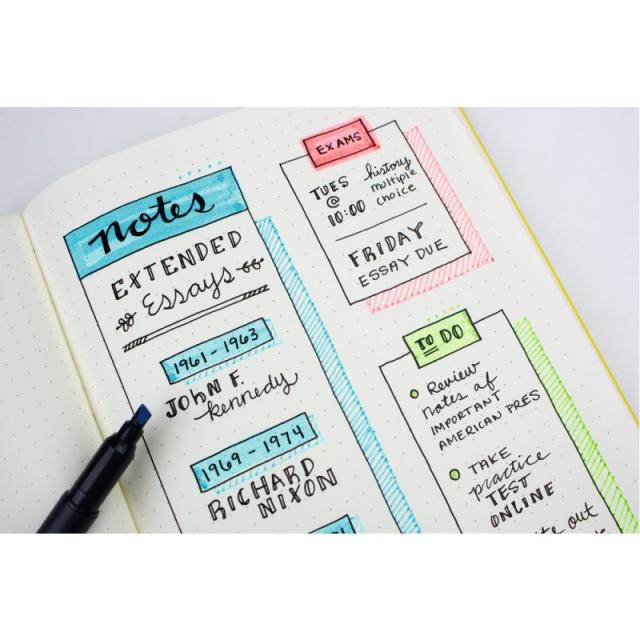 notes
EXTENDED
Essays
1961-1963
JOHN F.
kennedy
1969-1974
RICHARD
NIXON
EXAMS
TUES
@
10:00
history
multiple
choice
FRIDAY
ESSAY DUE
TO DO
Review
notes of
IMPORTANT
AMERICAN PRES
TAKE
practice
TEST
ONLINE
out